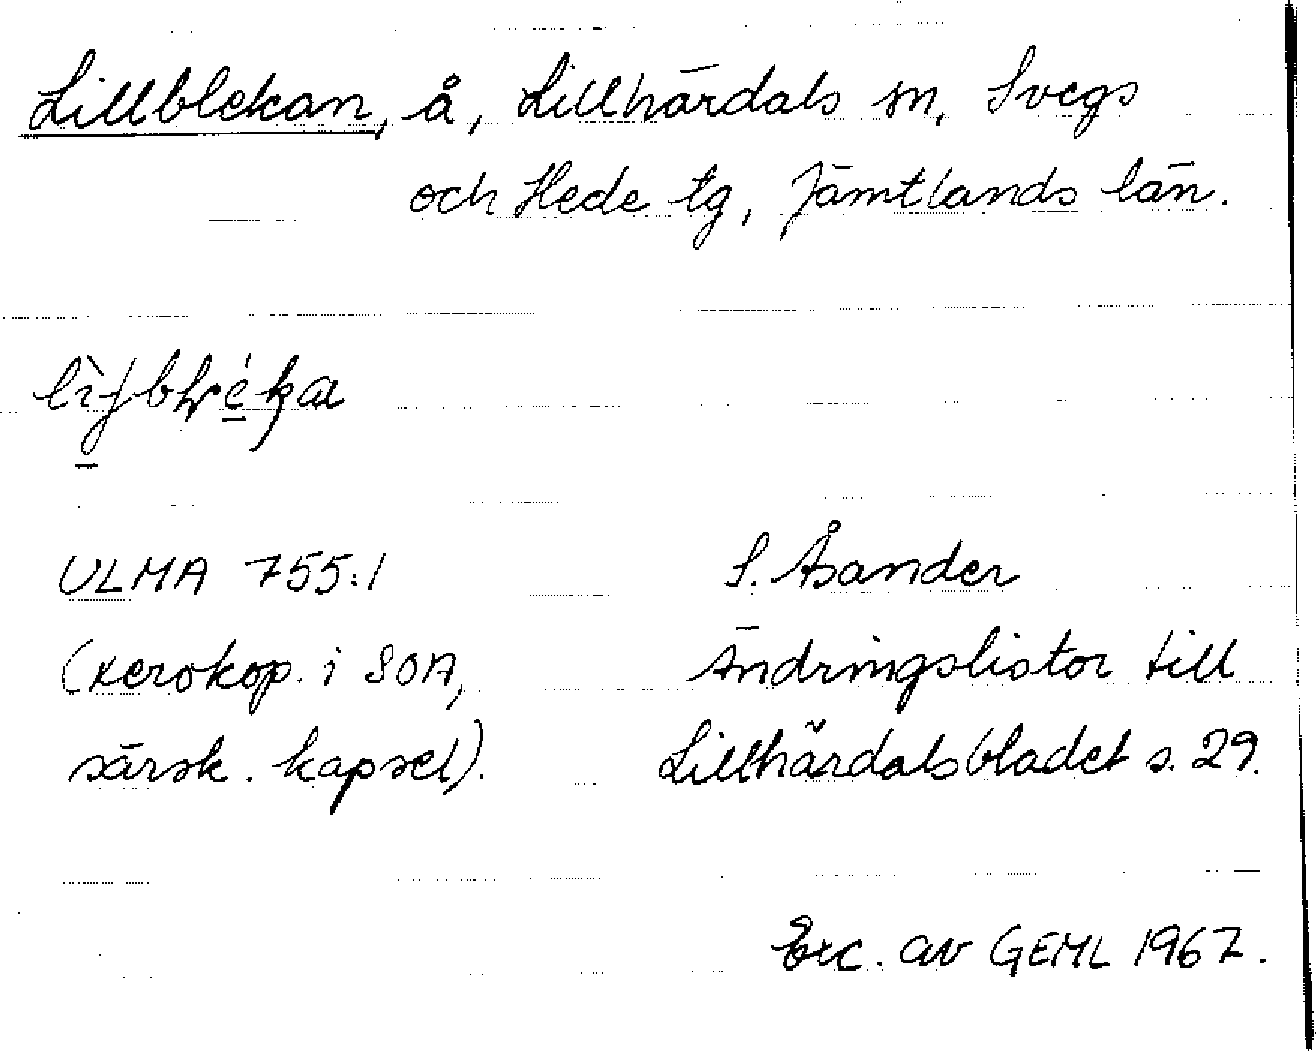 Lillblekan, å, Lillhärdals sn, Svegs
och Hede tg, Jämtlands län.
ULMA 755:1
(xerokop. i SOA,
särsk. kapsel).
S. Åsander
Ändringslistor till
Lillhärdalsbladet s. 29.
Exc. av GEML 1967.